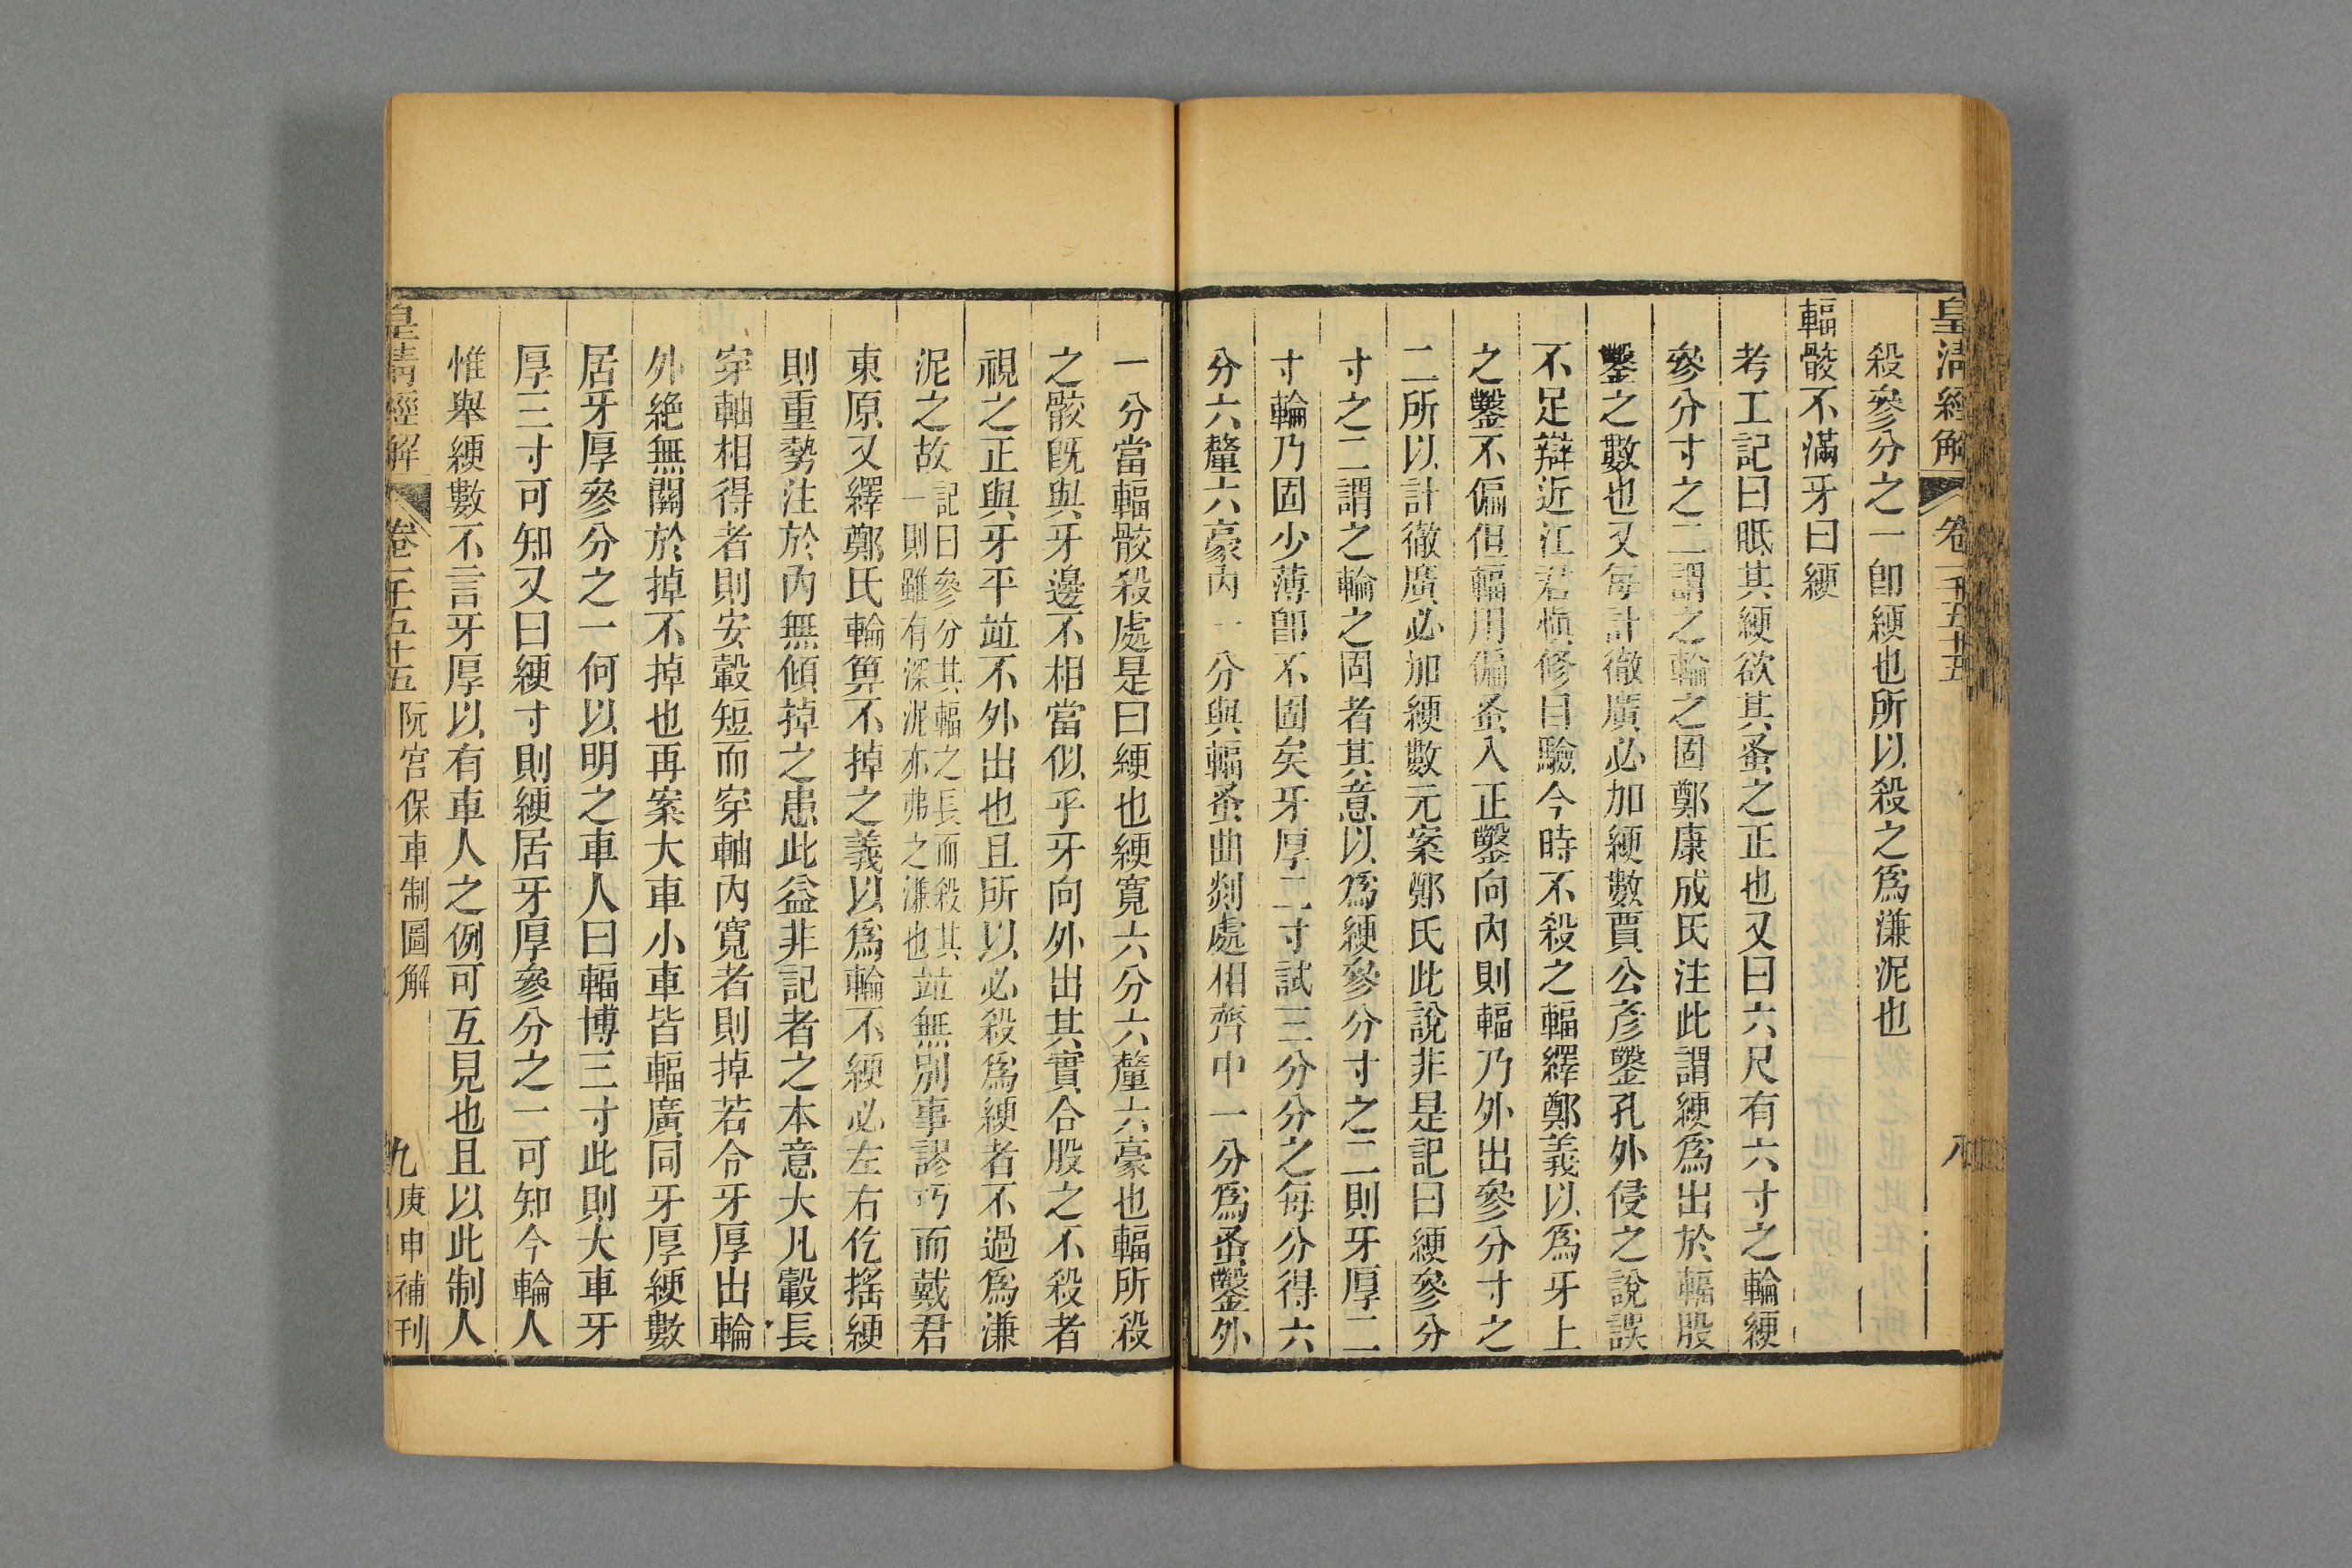 皇清經解 卷一千五十五 八
殺參分之一卽綆也所以殺之爲溓泥也
輻骹不滿牙曰綆
考工記曰眡其綆欲其蚤之正也又曰六尺有六寸之輪綆
參分寸之二謂之輪之固鄭康成氏注此謂綆爲出於輻股
鑿之數也又每計徹廣必加綆數賈公彥鑿孔外侵之說誤
不足辯近江君愼修曰驗今時不殺之輻繹鄭義以爲牙上
之鑿不偏但輻用偏蚤入正鑿向內則輻乃外出參分寸之
二所以計徹廣必加綆數元案鄭氏此說非是記曰綆參分
寸之二謂之輪之固者其意以爲綆參分寸之二則牙厚二
寸輪乃固少薄卽不固矣牙厚二寸試三分分之每分得六
分六釐六豪內一分與輻蚤曲剡處相齊中一分爲蚤鑿外
一分當輻骹殺處是曰綆也綆寬六分六釐六豪也輻所殺
之骹旣與牙邊不相當似乎牙向外出其實合股之不殺者
視之正與牙平竝不外出也且所以必殺爲綆者不過爲溓
泥之故記曰參分其輻之長而殺其一則雖有深泥亦弗之溓也竝無別事謬巧而戴君
東原又繹鄭氏輪箅不掉之義以爲輪不綆必左右仡搖綆
則重勢注於內無傾掉之患此益非記者之本意大凡轂長
穿軸相得者則安轂短而穿軸內寬者則掉若令牙厚出輪
外絶無關於掉不掉也再案大車小車皆輻廣同牙厚綆數
居牙厚參分之一何以明之車人曰輻博三寸此則大車牙
厚三寸可知又曰綆寸則綆居牙厚參分之一可知今輪人
惟舉綆數不言牙厚以有車人之例可互見也且以此制人
皇清經解 卷一千五十五 阮宮保車制圖解 九 庚申補刊